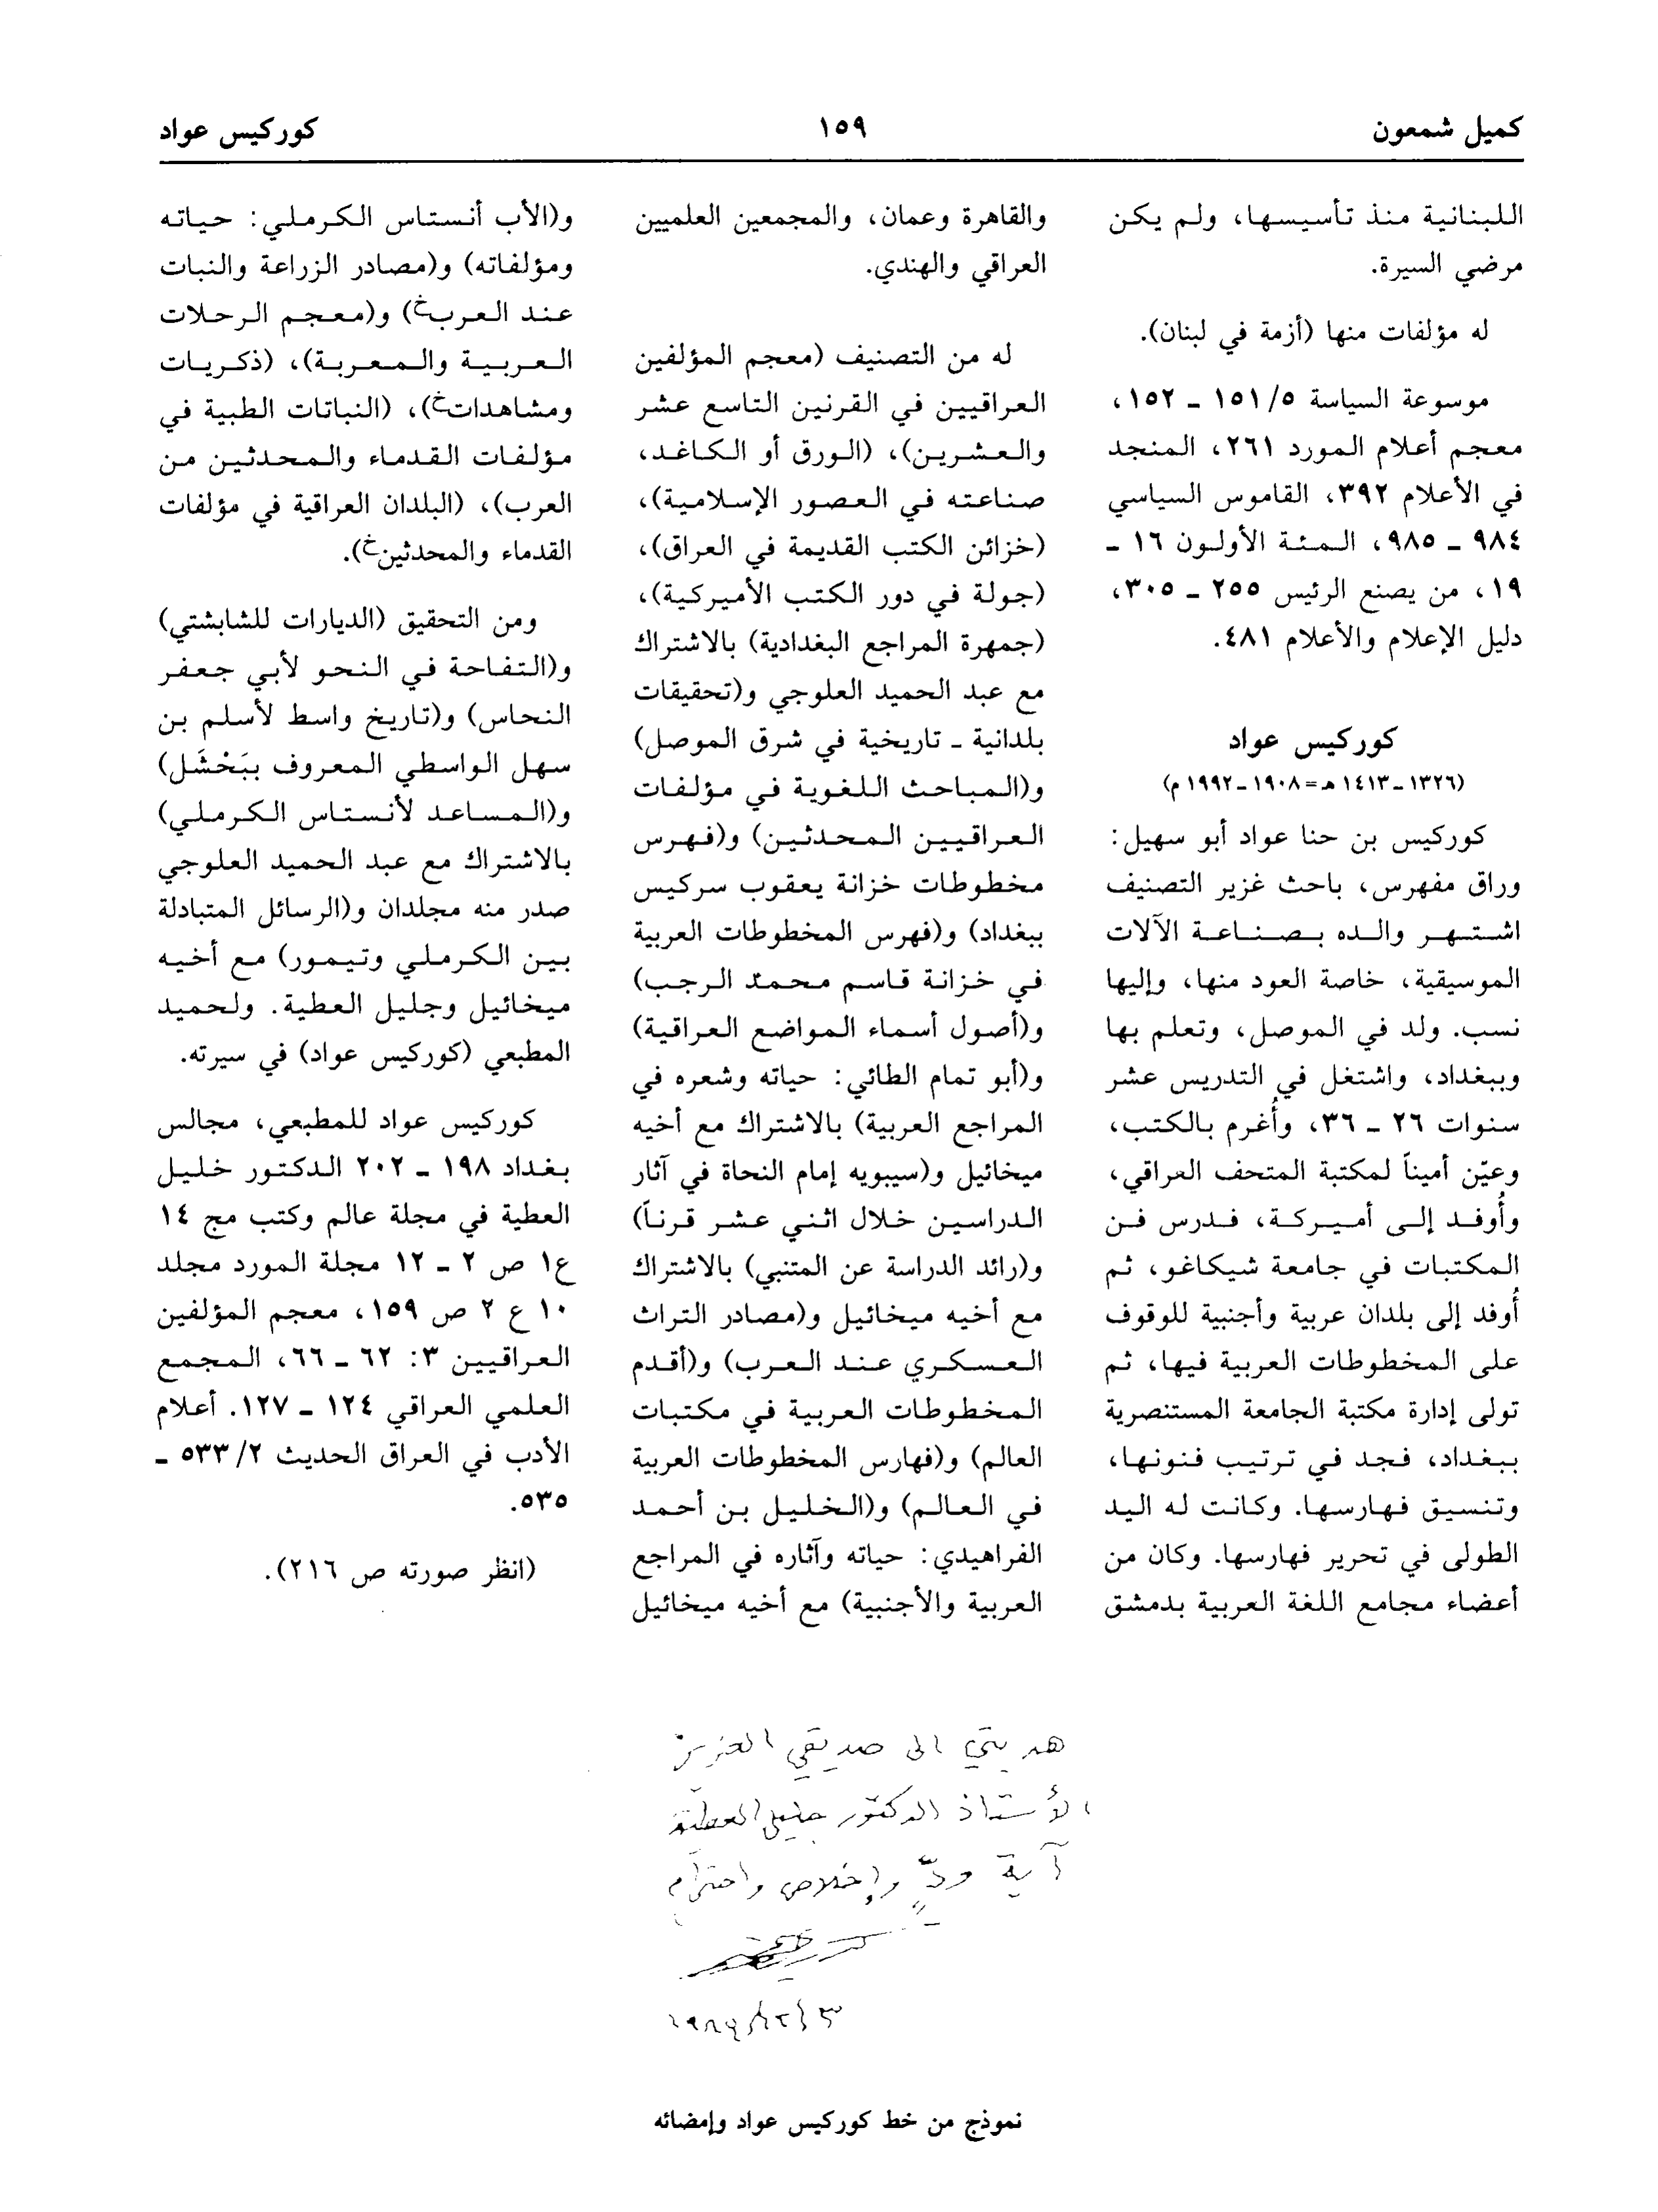 كميل شمعون
١٥٩
كوركيس عواد
اللبنانية منذ تأسيسها، ولم يكن
مرضي السيرة.
له مؤلفات منها (أزمة في لبنان).
موسوعة السياسة ٥/ ١٥١ ـ ١٥٢،
معجم أعلام المورد ٢٦١، المنجد
في الأعلام ٣٩٢، القاموس السياسي
٩٨٤ ـ ٩٨٥، المئة الأولون ١٦ ـ
١٩، من يصنع الرئيس ٢٥٥ ـ ٣٠٥،
دليل الإعلام والأعلام ٤٨١.
كوركيس عواد
(١٣٢٦ـ ١٤١٣ هـ = ١٩٠٨ـ ١٩٩٢ م)
كوركيس بن حنا عواد أبو سهيل:
وراق مفهرس، باحث غزير التصنيف
اشتهر والده بصناعة الآلات
الموسيقية، خاصة العود منها، وإليها
نسب. ولد في الموصل، وتعلم بها
وببغداد، واشتغل في التدريس عشر
سنوات ٢٦ ـ ٣٦، وأُغرم بالكتب،
وعيّن أميناً لمكتبة المتحف العراقي،
وأُوفد إلى أميركة، فدرس فن
المكتبات في جامعة شيكاغو، ثم
أُوفد إلى بلدان عربية وأجنبية للوقوف
على المخطوطات العربية فيها، ثم
تولى إدارة مكتبة الجامعة المستنصرية
ببغداد، فجد في ترتيب فنونها،
وتنسيق فهارسها. وكانت له اليد
الطولى في تحرير فهارسها. وكان من
أعضاء مجامع اللغة العربية بدمشق
والقاهرة وعمان، والمجمعين العلميين
العراقي والهندي.
له من التصنيف (معجم المؤلفين
العراقيين في القرنين التاسع عشر
والعشرين)، (الورق أو الكاغد،
صناعته في العصور الإسلامية)،
(خزائن الكتب القديمة في العراق)،
(جولة في دور الكتب الأميركية)،
(جمهرة المراجع البغدادية) بالاشتراك
مع عبد الحميد العلوجي و(تحقيقات
بلدانية ـ تاريخية في شرق الموصل)
و(المباحث اللغوية في مؤلفات
العراقيين المحدثين) و(فهرس
مخطوطات خزانة يعقوب سركيس
ببغداد) و(فهرس المخطوطات العربية
في خزانة قاسم محمد الرجب)
و(أصول أسماء المواضع العراقية)
و(أبو تمام الطائي: حياته وشعره في
المراجع العربية) بالاشتراك مع أخيه
ميخائيل و(سيبويه إمام النحاة في آثار
الدراسين خلال اثني عشر قرناً)
و(رائد الدراسة عن المتنبي) بالاشتراك
مع أخيه ميخائيل و(مصادر التراث
العسكري عند العرب) و(أقدم
المخطوطات العربية في مكتبات
العالم) و(فهارس المخطوطات العربية
في العالم) و(الخليل بن أحمد
الفراهيدي: حياته وآثاره في المراجع
العربية والأجنبية) مع أخيه ميخائيل
و(الأب أنستاس الكرملي: حياته
ومؤلفاته) و(مصادر الزراعة والنبات
عند العرب خ) و(معجم الرحلات
العربية والمعربة)، (ذكريات
ومشاهدات خ)، (النباتات الطبية في
مؤلفات القدماء والمحدثين من
العرب)، (البلدان العراقية في مؤلفات
القدماء والمحدثين خ).
ومن التحقيق (الديارات للشابشتي)
و(التفاحة في النحو لأبي جعفر
النحاس) و(تاريخ واسط لأسلم بن
سهل الواسطي المعروف ببَحْشَل)
و(المساعد لأنستاس الكرملي)
بالاشتراك مع عبد الحميد العلوجي
صدر منه مجلدان و(الرسائل المتبادلة
بين الكرملي وتيمور) مع أخيه
ميخائيل وجليل العطية. ولحميد
المطبعي (كوركيس عواد) في سيرته.
كوركيس عواد للمطبعي، مجالس
بغداد ١٩٨ ـ ٢٠٢ الدكتور خليل
العطية في مجلة عالم وكتب مج ١٤
ع١ ص ٢ ـ ١٢ مجلة المورد مجلد
١٠ ع ٢ ص ١٥٩، معجم المؤلفين
العراقيين ٣: ٦٢ ـ ٦٦، المجمع
العلمي العراقي ١٢٤ ـ ١٢٧. أعلام
الأدب في العراق الحديث ٢/ ٥٣٣ ـ
٥٣٥.
(انظر صورته ص ٢١٦).
هديتي الى صديقي العزيز
الأستاذ الدكتور جليل العطية
آية ودٍّ وإخلاص واحترام
نموذج من خط كوركيس عواد وإمضائه